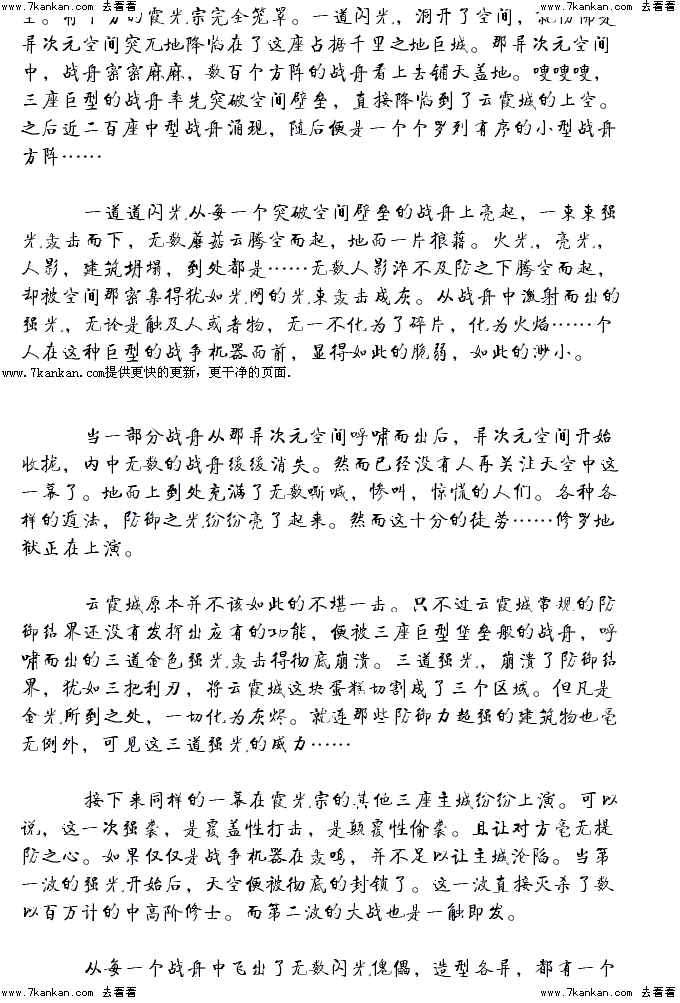 www.7kankan.com 去看看 www.7kankan.com 去看看 www.7kankan.com 去看看
异次元空间突兀地降临在了这座占据千里之地巨城。那异次元空间
中，战舟密密麻麻，数百个方阵的战舟看上去铺天盖地。嗖嗖嗖，
三座巨型的战舟率先突破空间壁垒，直接降临到了云霞城的上空。
之后近二百座中型战舟涌现，随后便是一个个罗列有序的小型战舟
方阵……
一道道闪光，从每一个突破空间壁垒的战舟上亮起，一束束强
光，轰击而下，无数蘑菇云腾空而起，地面一片狼藉。火光，亮光，
人影，建筑坍塌，到处都是……无数人影淬不及防之下腾空而起，
却被空间那密集得犹如光网的光束轰击成灰。从战舟中激射而出的
强光，无论是触及人或者物，无一不化为了碎片，化为火焰……个
人在这种巨型的战争机器面前，显得如此的脆弱，如此的渺小。
www.7kankan.com提供更快的更新，更干净的页面.
当一部分战舟从那异次元空间呼啸而出后，异次元空间开始
收拢，内中无数的战舟缓缓消失。然而已经没有人再关注天空中这
一幕了。地面上到处充满了无数嘶喊，惨叫，惊慌的人们。各种各
样的遁法，防御之光，纷纷亮了起来。然而这十分的徒劳……修罗地
狱正在上演。
云霞城原本并不该如此的不堪一击。只不过云霞城常规的防
御结界还没有发挥出应有的功能，便被三座巨型堡垒般的战舟，呼
啸而出的三道金色强光，轰击得彻底崩溃。三道强光，崩溃了防御结
界，犹如三把利刃，将云霞城这块蛋糕切割成了三个区域。但凡是
金光，所到之处，一切化为灰烬。就连那些防御力超强的建筑物也毫
无例外，可见这三道强光，的威力……
接下来同样的一幕在霞光，宗的其他三座主城纷纷上演。可以
说，这一次强袭，是覆盖性打击，是颠覆性偷袭。且让对方毫无提
防之心。如果仅仅是战争机器在轰鸣，并不足以让主城沦陷。当第
一波的强光，开始后，天空便被彻底的封锁了。这一波直接灭杀了数
以百万计的中高阶修士。而第二波的大战也是一触即发。
从每一个战舟中飞出了无数闪光，傀儡，造型各异，都有一个
www.7kankan.com 去看看 www.7kankan.com 去看看 www.7kankan.com 去看看